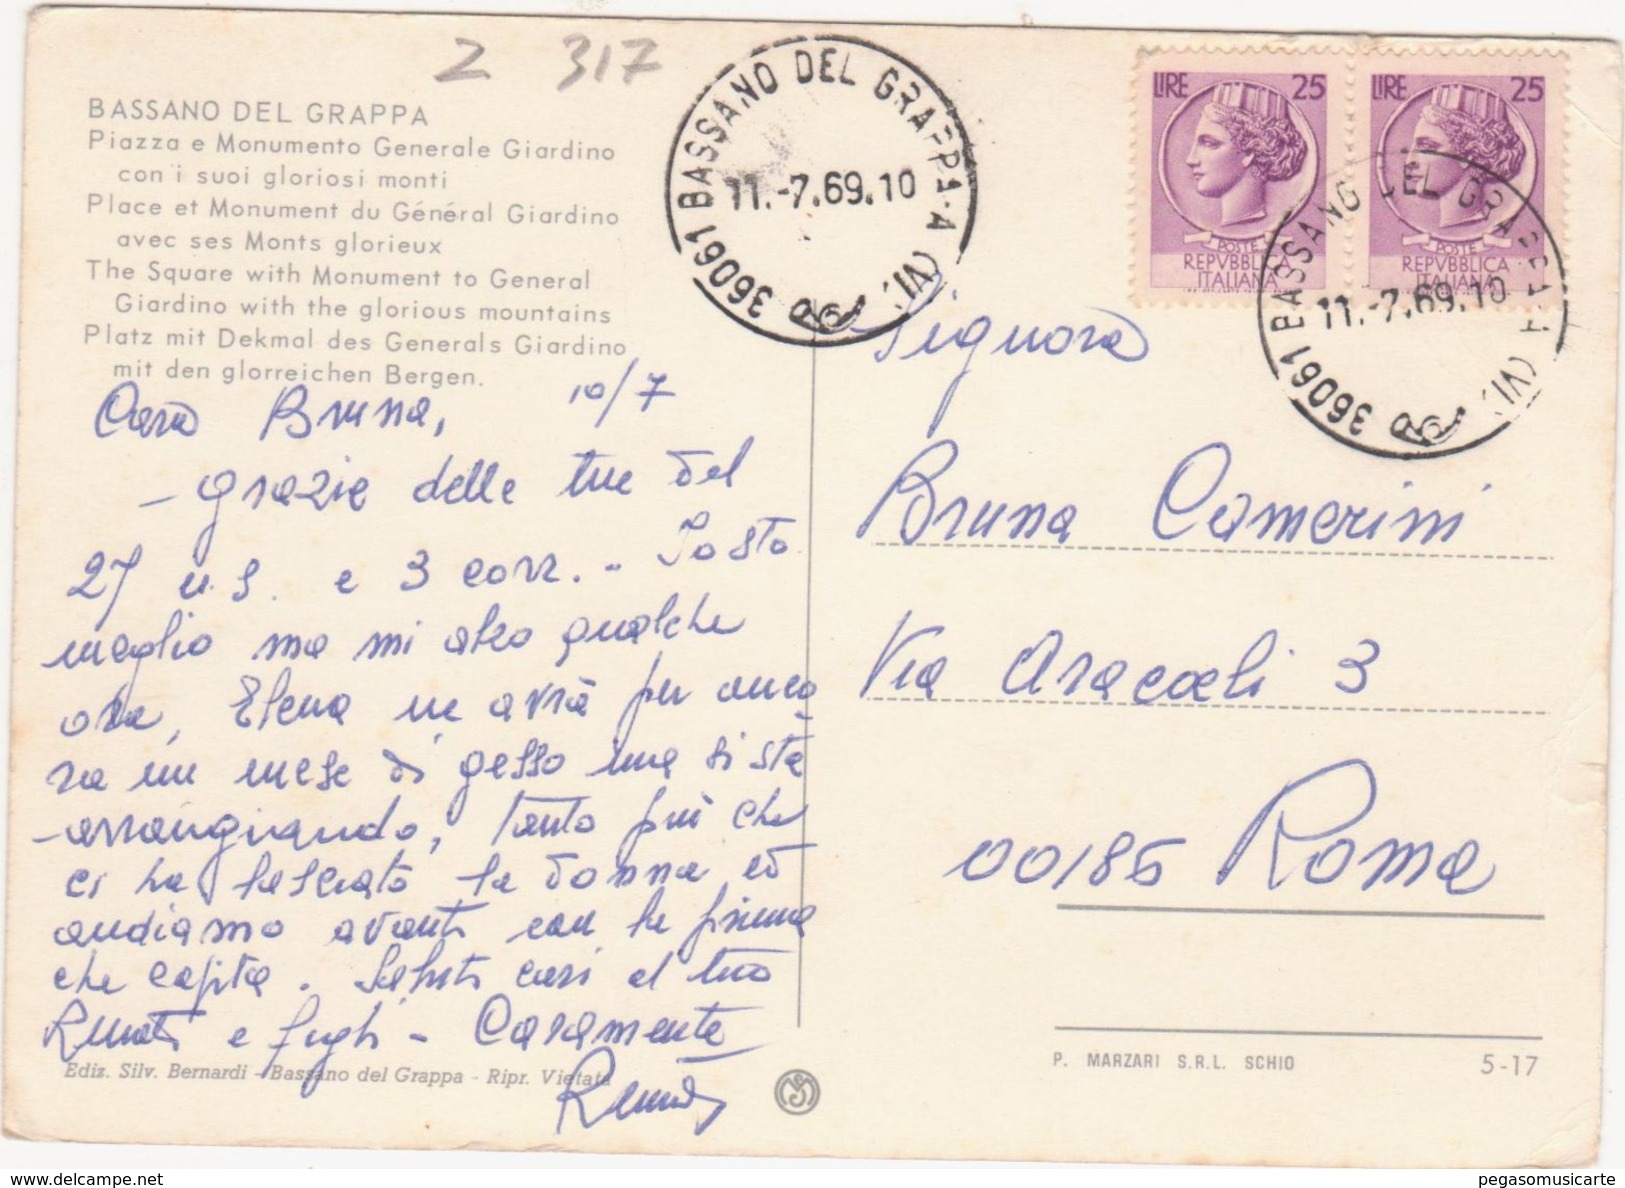 Z 317
BASSANO DEL GRAPPA
Piazza e Monumento Generale Giardino
con i suoi gloriosi monti
Place et Monument du Général Giardino
avec ses Monts glorieux
The Square with Monument to General
Giardino with the glorious mountains
Platz mit Dekmal des Generals Giardino
mit den glorreichen Bergen.
10/7
Cara Bruna,
- grazie delle tue del
27 u.s. e 3 corr. - Io sto
meglio ma mi alzo qualche
ora, Elena ne avrà per anco
ra un mese di gesso ma si stà
arrangiando, tanto più che
ci ha lasciato la donna ed
andiamo avanti con la prima
che capita. Saluti cari al tuo
e figli - Caramente
Ediz. Silv. Bernardi - Bassano del Grappa - Ripr. Vietata
36061 BASSANO DEL GRAPPA (VI)
11.-7.69.10
LIRE 25
POSTE
REPVBBLICA
ITALIANA
LIRE 25
POSTE
REPVBBLICA
ITALIANA
36061 BASSANO DEL GRAPPA (VI)
11.-7.69.10
Signora
Bruna Camerini
Via Aracoeli 3
00186 Roma
P. MARZARI S.R.L. SCHIO
5-17
pegasomusicarte